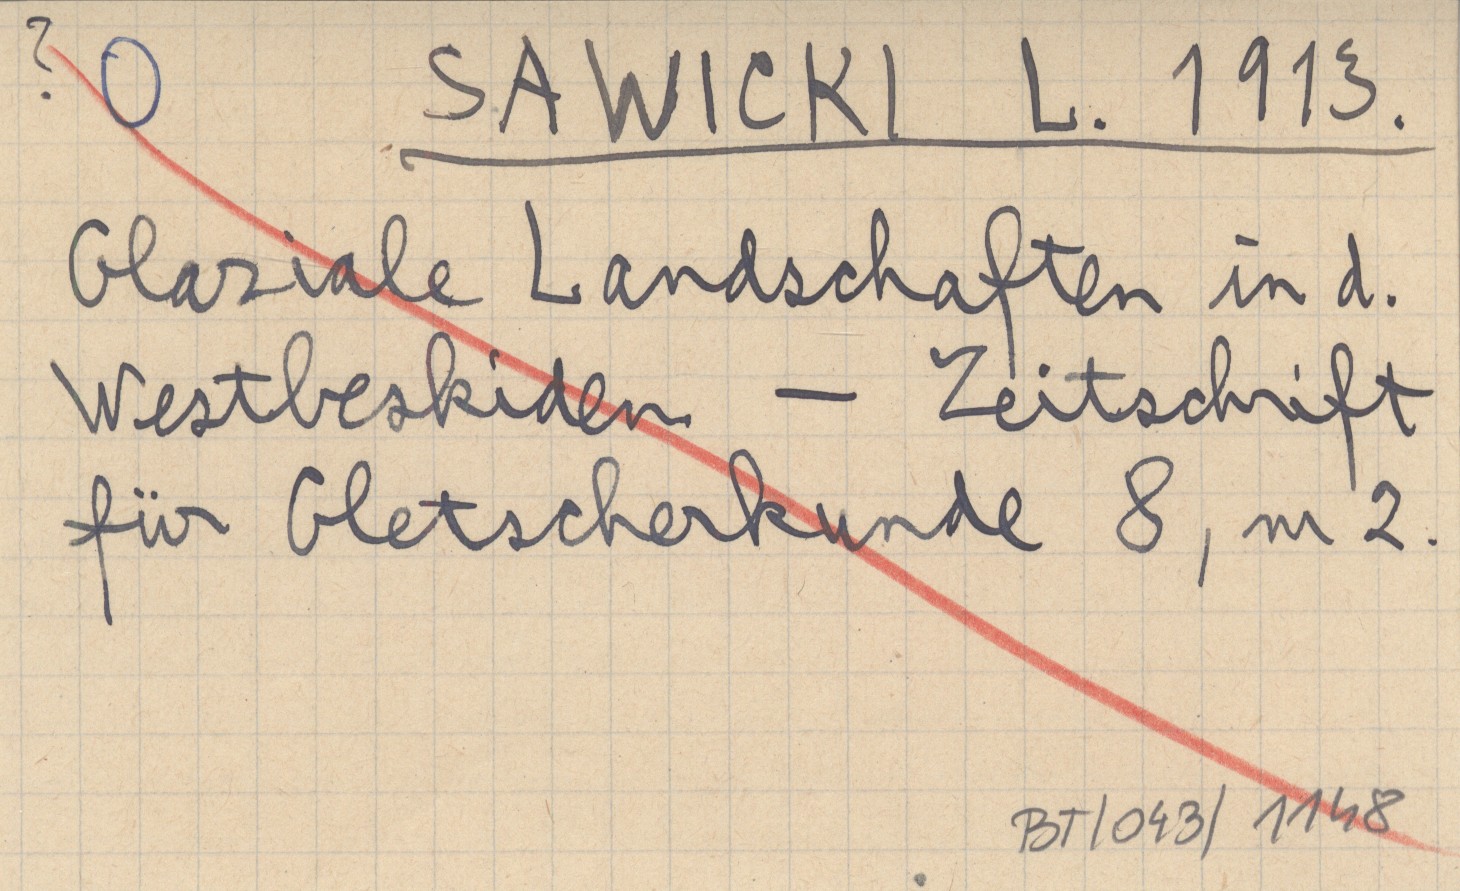 ? O SAWICKI L. 1913.
Glaziale Landschaften in d.
Westbeskiden — Zeitschrift
für Gletscherkunde 8, nr 2.
BT/043/1148